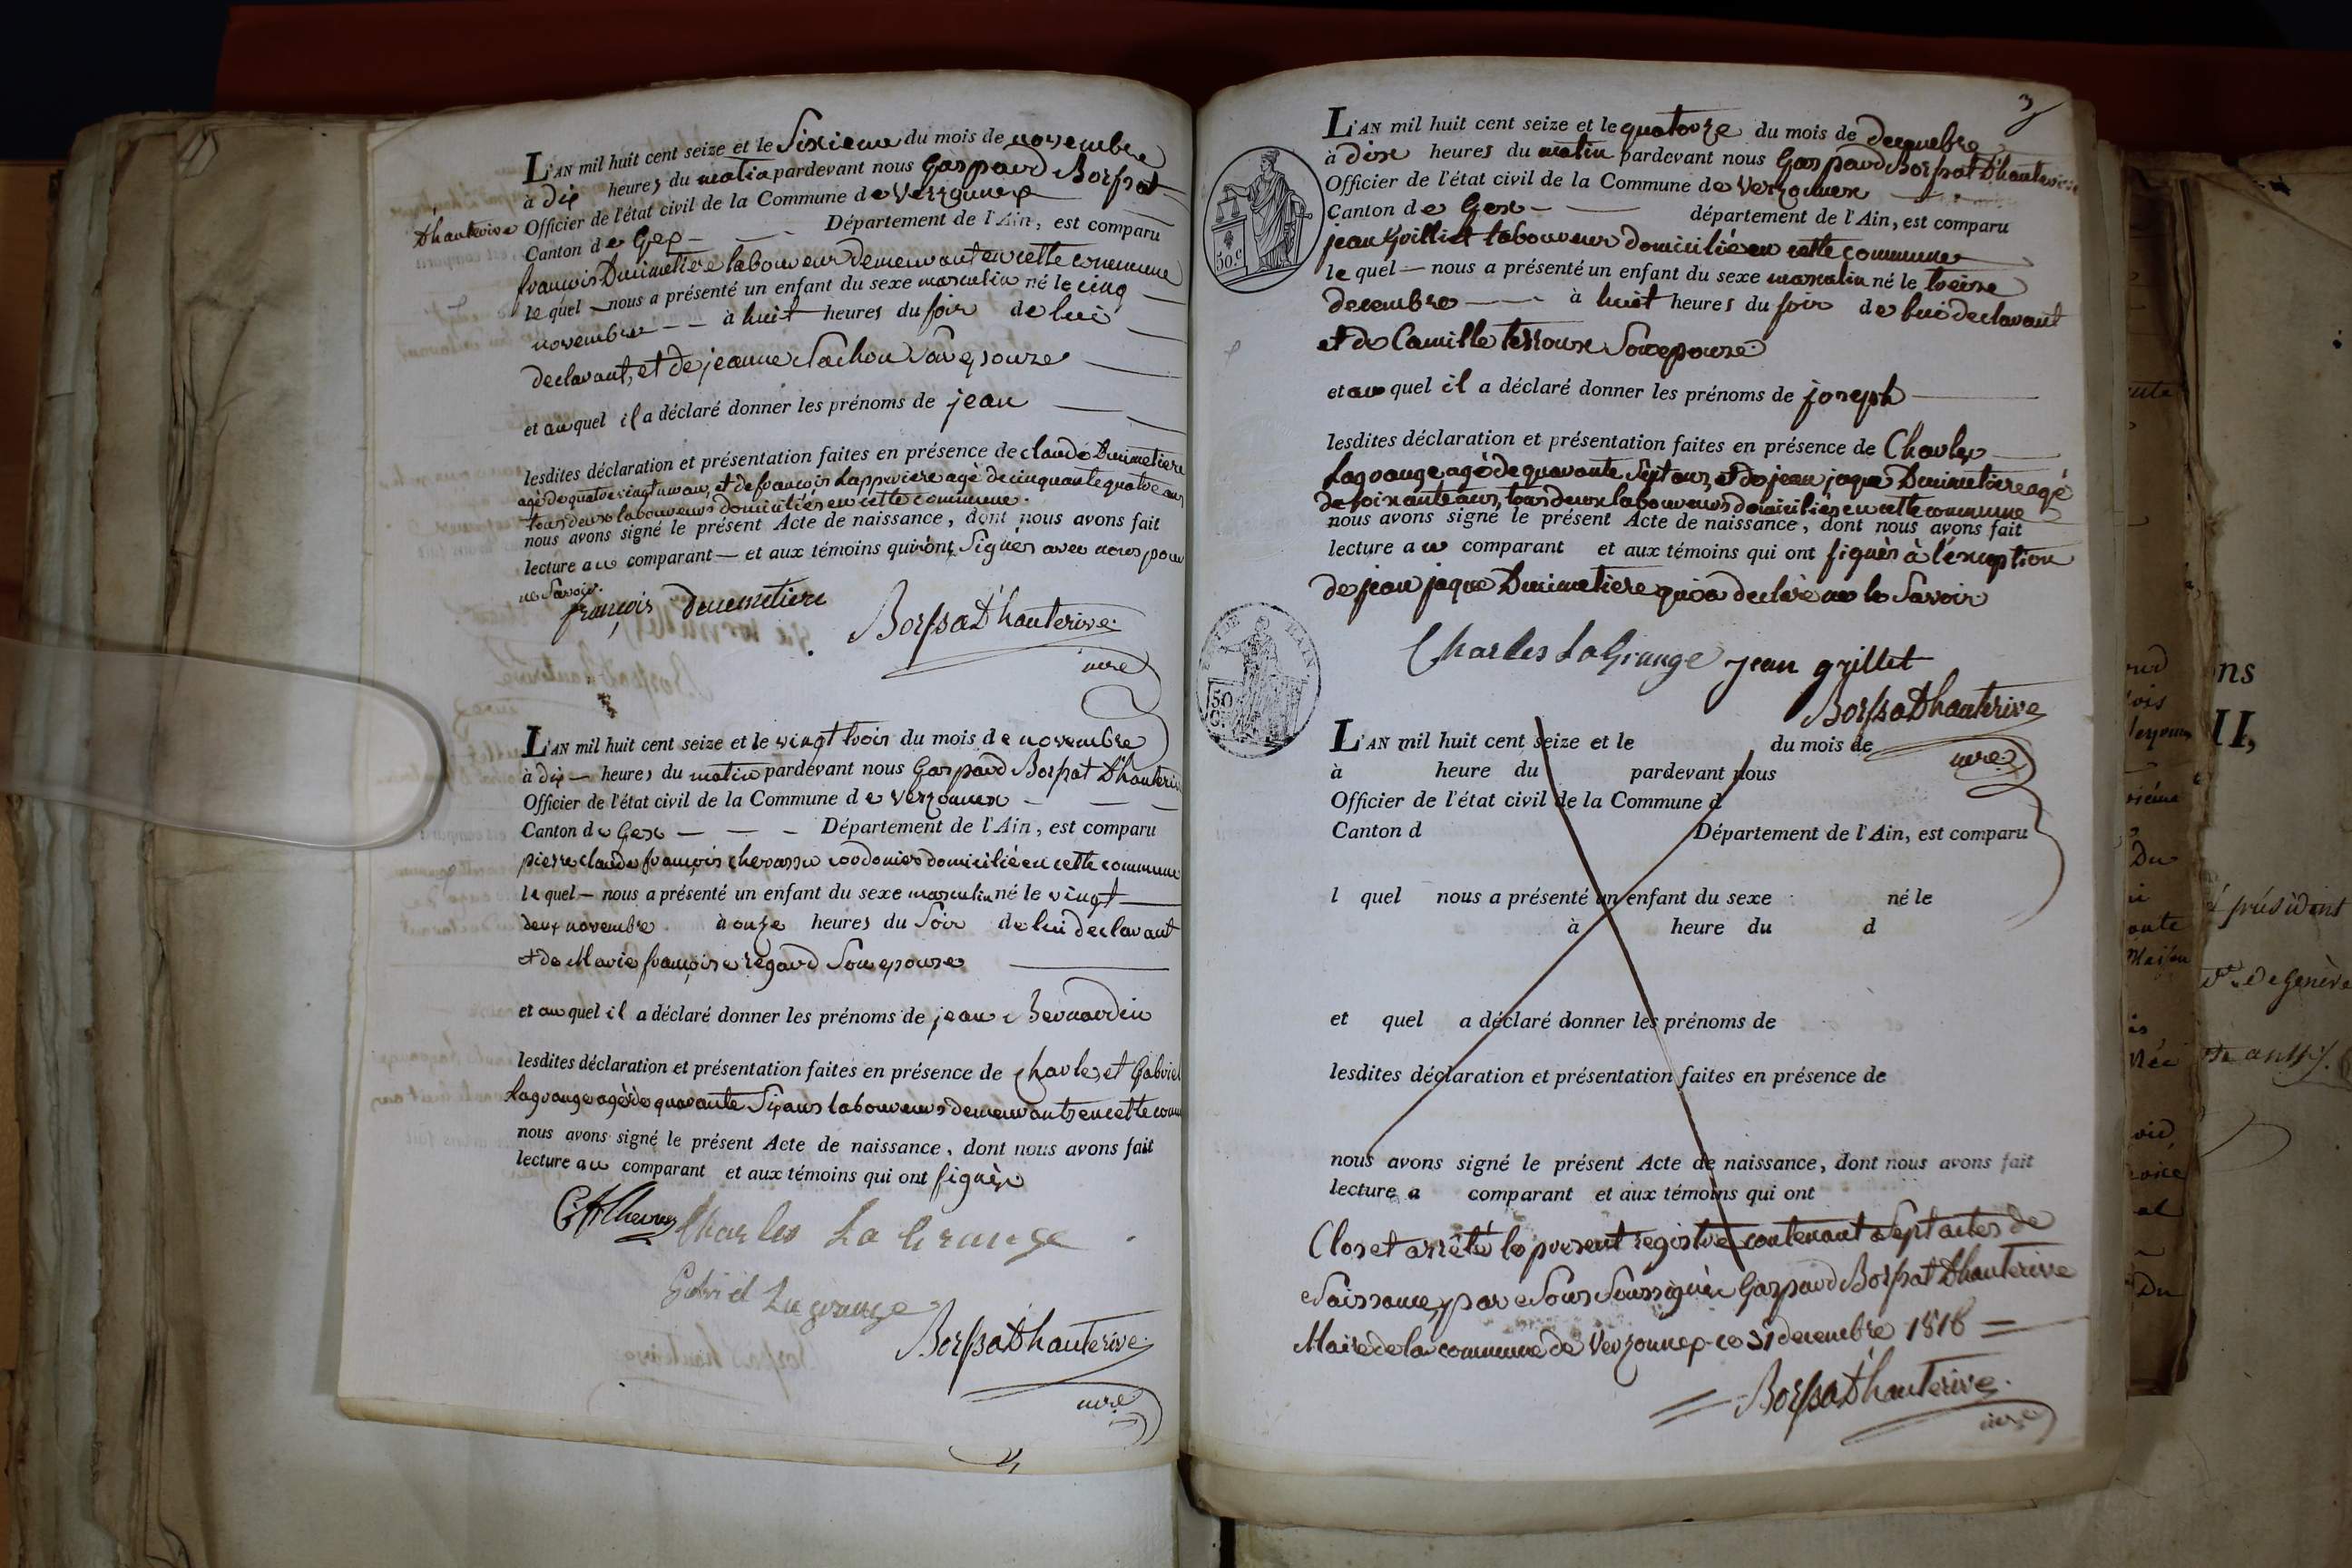 L'AN mil huit cent seize et le Sixieme du mois de novembre
à dix heures du matin pardevant nous Gaspard Borssat
Dhauterive Officier de l'état civil de la Commune de Verzonnex
Canton de Gex Département de l'Ain, est comparu
françois Dumetiere laboureur demeurant en cette commune
le quel nous a présenté un enfant du sexe masculin né le cinq
novembre à huit heures du soir de lui
declarant, et de jeanne Sachon son epouze
et au quel il a déclaré donner les prénoms de jean
lesdites déclaration et présentation faites en présence de claude Dumetiere
agé de quatrevingt un an, et de francois Lapproviere agé de cinquante quatre ans
tous deux laboureurs domiciliés en cette commune.
nous avons signé le présent Acte de naissance, dont nous avons fait
lecture au comparant et aux témoins qui n'ont Signés avec nous pour
ne Savoir.
françois dumetiere
BorssaDhauterive
mre
L'AN mil huit cent seize et le vingt trois du mois de novembre
à dix heures du matin pardevant nous Gaspard Borssat Dhauterive
Officier de l'état civil de la Commune de Verzonnex
Canton de Gex Département de l'Ain, est comparu
pierre claude françois chevassu cordonier domicilié en cette commune
le quel nous a présenté un enfant du sexe masculin né le vingt
deux novembre à onze heures du Soir de lui declarant
et de Marie françoise regard Son epouse
et au quel il a déclaré donner les prénoms de jean Bernardin
lesdites déclaration et présentation faites en présence de Charles, et Gabriel
Lagrange agés de quarante Six ans laboureurs demeurants en cette comm
nous avons signé le présent Acte de naissance, dont nous avons fait
lecture au comparant et aux témoins qui ont signés
Charles La Grange
Gabriel Lagrange
BorssaDhauterive
mre
3
L'AN mil huit cent seize et le quatorze du mois de decembre
à dix heures du matin pardevant nous Gaspard Borssat Dhauterive
Officier de l'état civil de la Commune de Verzonnex
Canton de Gex département de l'Ain, est comparu
jean Grilliet laboureur domicilié en cette commune
le quel nous a présenté un enfant du sexe masculin né le treize
decembre à huit heures du soir de lui declarant
et de Camille terroux Son epouze
et au quel il a déclaré donner les prénoms de joseph
lesdites déclaration et présentation faites en présence de Charles
Lagrange, agé de quarante Sept ans, et de jean jaque Dumetiere agé
de soixante ans, tous deux laboureurs domiciliés en cette commune
nous avons signé le présent Acte de naissance, dont nous avons fait
lecture au comparant et aux témoins qui ont signés à l'exception
de jean jaque Dumetiere qui a declaré ne le Savoir
50.c
50
Charles LaGrange jean grillet
BorssaDhauterive
mre
L'AN mil huit cent seize et le du mois de
à heure du pardevant nous
Officier de l'état civil de la Commune d
Canton d Département de l'Ain, est comparu
l quel nous a présenté un enfant du sexe né le
à heure du d
et quel a déclaré donner les prénoms de
lesdites déclaration et présentation faites en présence de
nous avons signé le présent Acte de naissance, dont nous avons fait
lecture a comparant et aux témoins qui ont
Clos et arrêté le present registre contenant Sept actes de
Naissance, par Nous Soussigné Gaspard Borssat Dhauterive
Maire de la commune de Verzonnex ce 31 decembre 1816
BorssaDhauterive
mre
ns
II,
président
De Genève